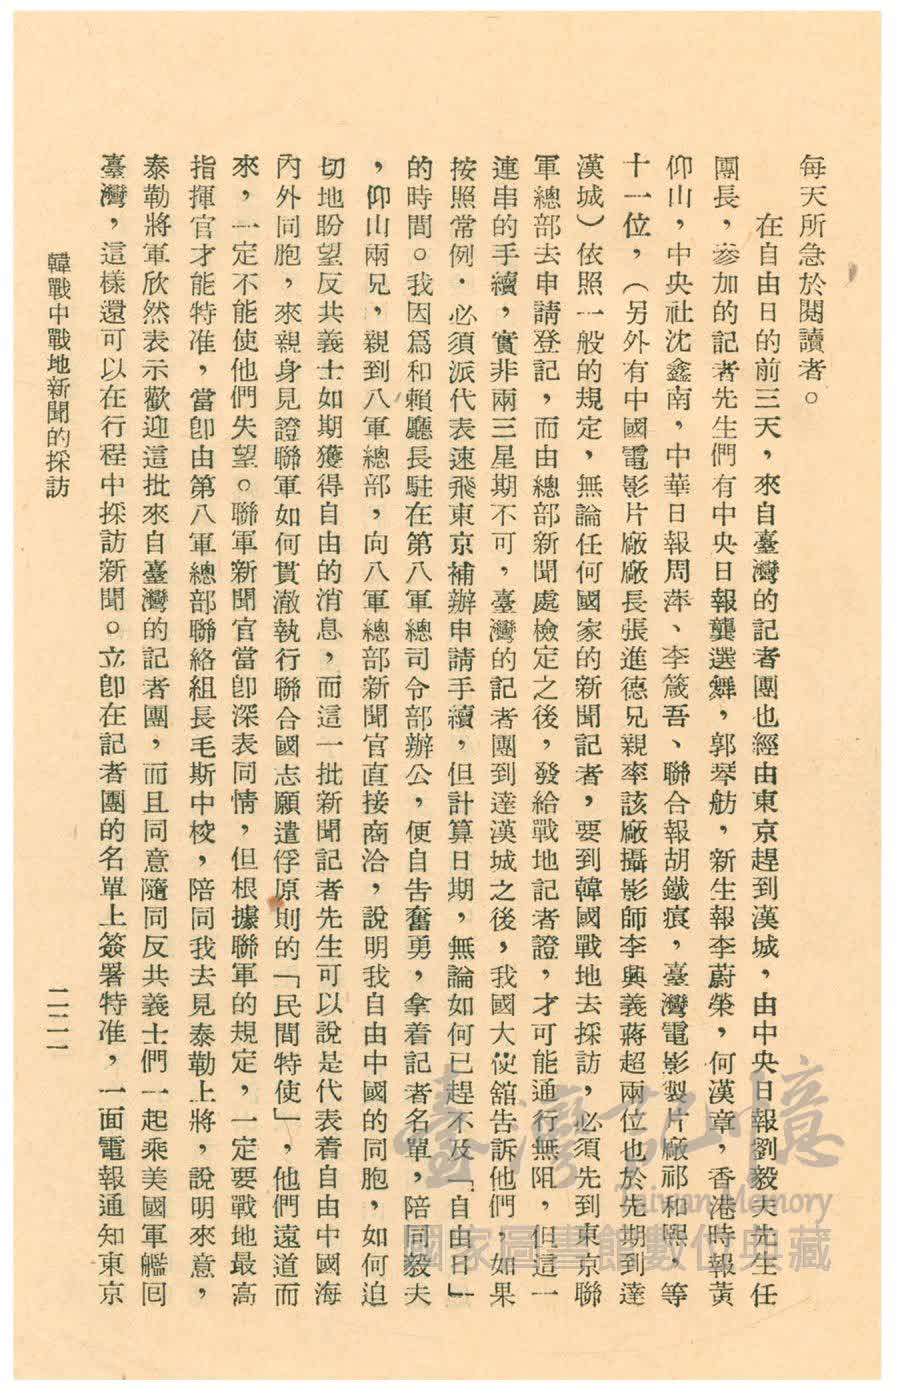 每天所急於閱讀者。
在自由日的前三天，來自臺灣的記者團也經由東京趕到漢城，由中央日報劉毅夫先生任
團長，參加的記者先生們有中央日報龔選舞，郭琴舫，新生報李蔚榮，何漢章，香港時報黃
仰山，中央社沈鑫南，中華日報周萍、李箴吾、聯合報胡鐵痕，臺灣電影製片廠祁和熙，等
十一位，（另外有中國電影片廠廠長張進德兄親率該廠攝影師李興義蔣超兩位也於先期到達
漢城）依照一般的規定，無論任何國家的新聞記者，要到韓國戰地去採訪，必須先到東京聯
軍總部去申請登記，而由總部新聞處檢定之後，發給戰地記者證，才可能通行無阻，但這一
連串的手續，實非兩三星期不可，臺灣的記者團到達漢城之後，我國大使舘告訴他們，如果
按照常例．必須派代表速飛東京補辦申請手續，但計算日期，無論如何已趕不及「自由日」
的時間。我因爲和賴廳長駐在第八軍總司令部辦公，便自告奮勇，拿着記者名單，陪同毅夫
，仰山兩兄，親到八軍總部，向八軍總部新聞官直接商洽，說明我自由中國的同胞，如何迫
切地盼望反共義士如期獲得自由的消息，而這一批新聞記者先生可以說是代表着自由中國海
內外同胞，來親身見證聯軍如何貫澈執行聯合國志願遣俘原則的「民間特使」，他們遠道而
來，一定不能使他們失望。聯軍新聞官當卽深表同情，但根據聯軍的規定，一定要戰地最高
指揮官才能特准，當卽由第八軍總部聯絡組長毛斯中校，陪同我去見泰勒上將，說明來意，
泰勒將軍欣然表示歡迎這批來自臺灣的記者團，而且同意隨同反共義士們一起乘美國軍艦囘
臺灣，這樣還可以在行程中採訪新聞。立卽在記者團的名單上簽署特准，一面電報通知東京
韓戰中戰地新聞的採訪
二二一
臺灣記憶
Taiwan Memory
國家圖書館數位典藏